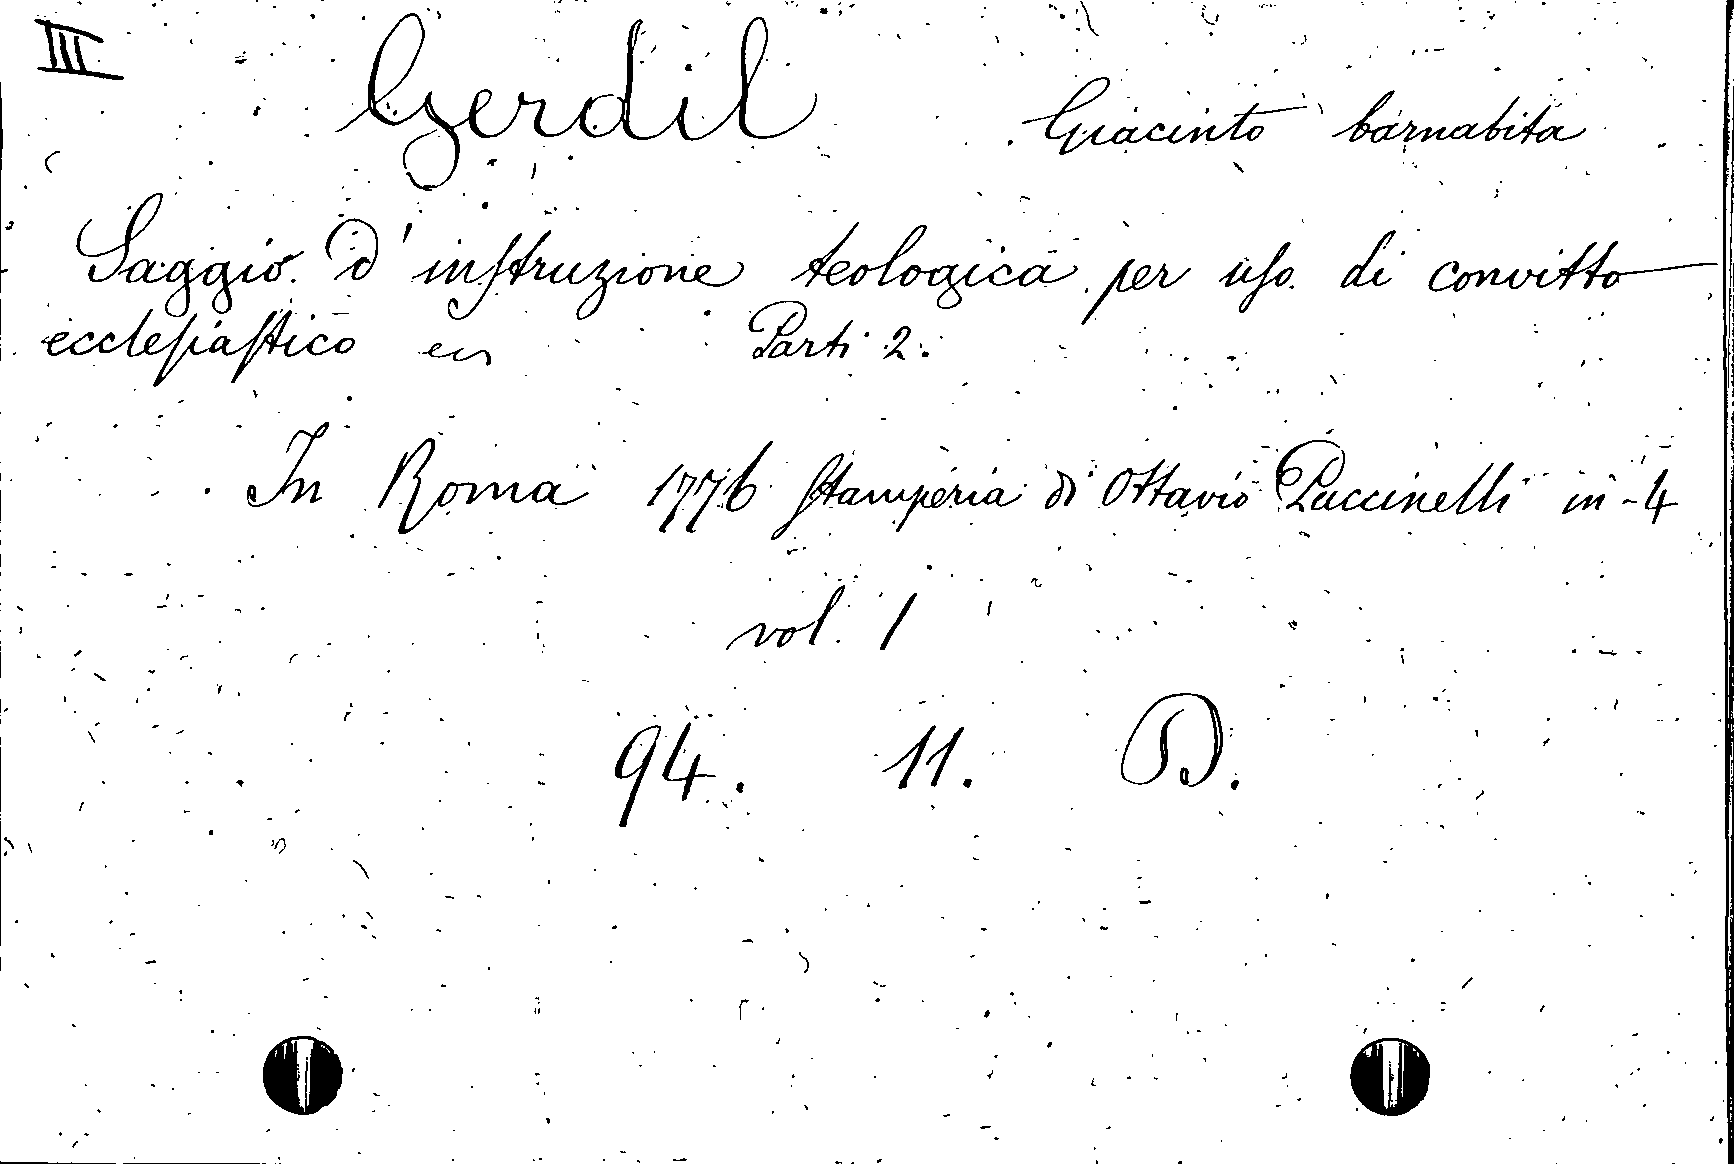 III
Gerdil Giacinto barnabita
Saggio d'inſtruzione teologica per uſo di convitto
eccleſiaſtico Parti 2.
In Roma 1776 Stamperia di Ottavio Puccinelli in-4
vol. 1
94. 11. D.